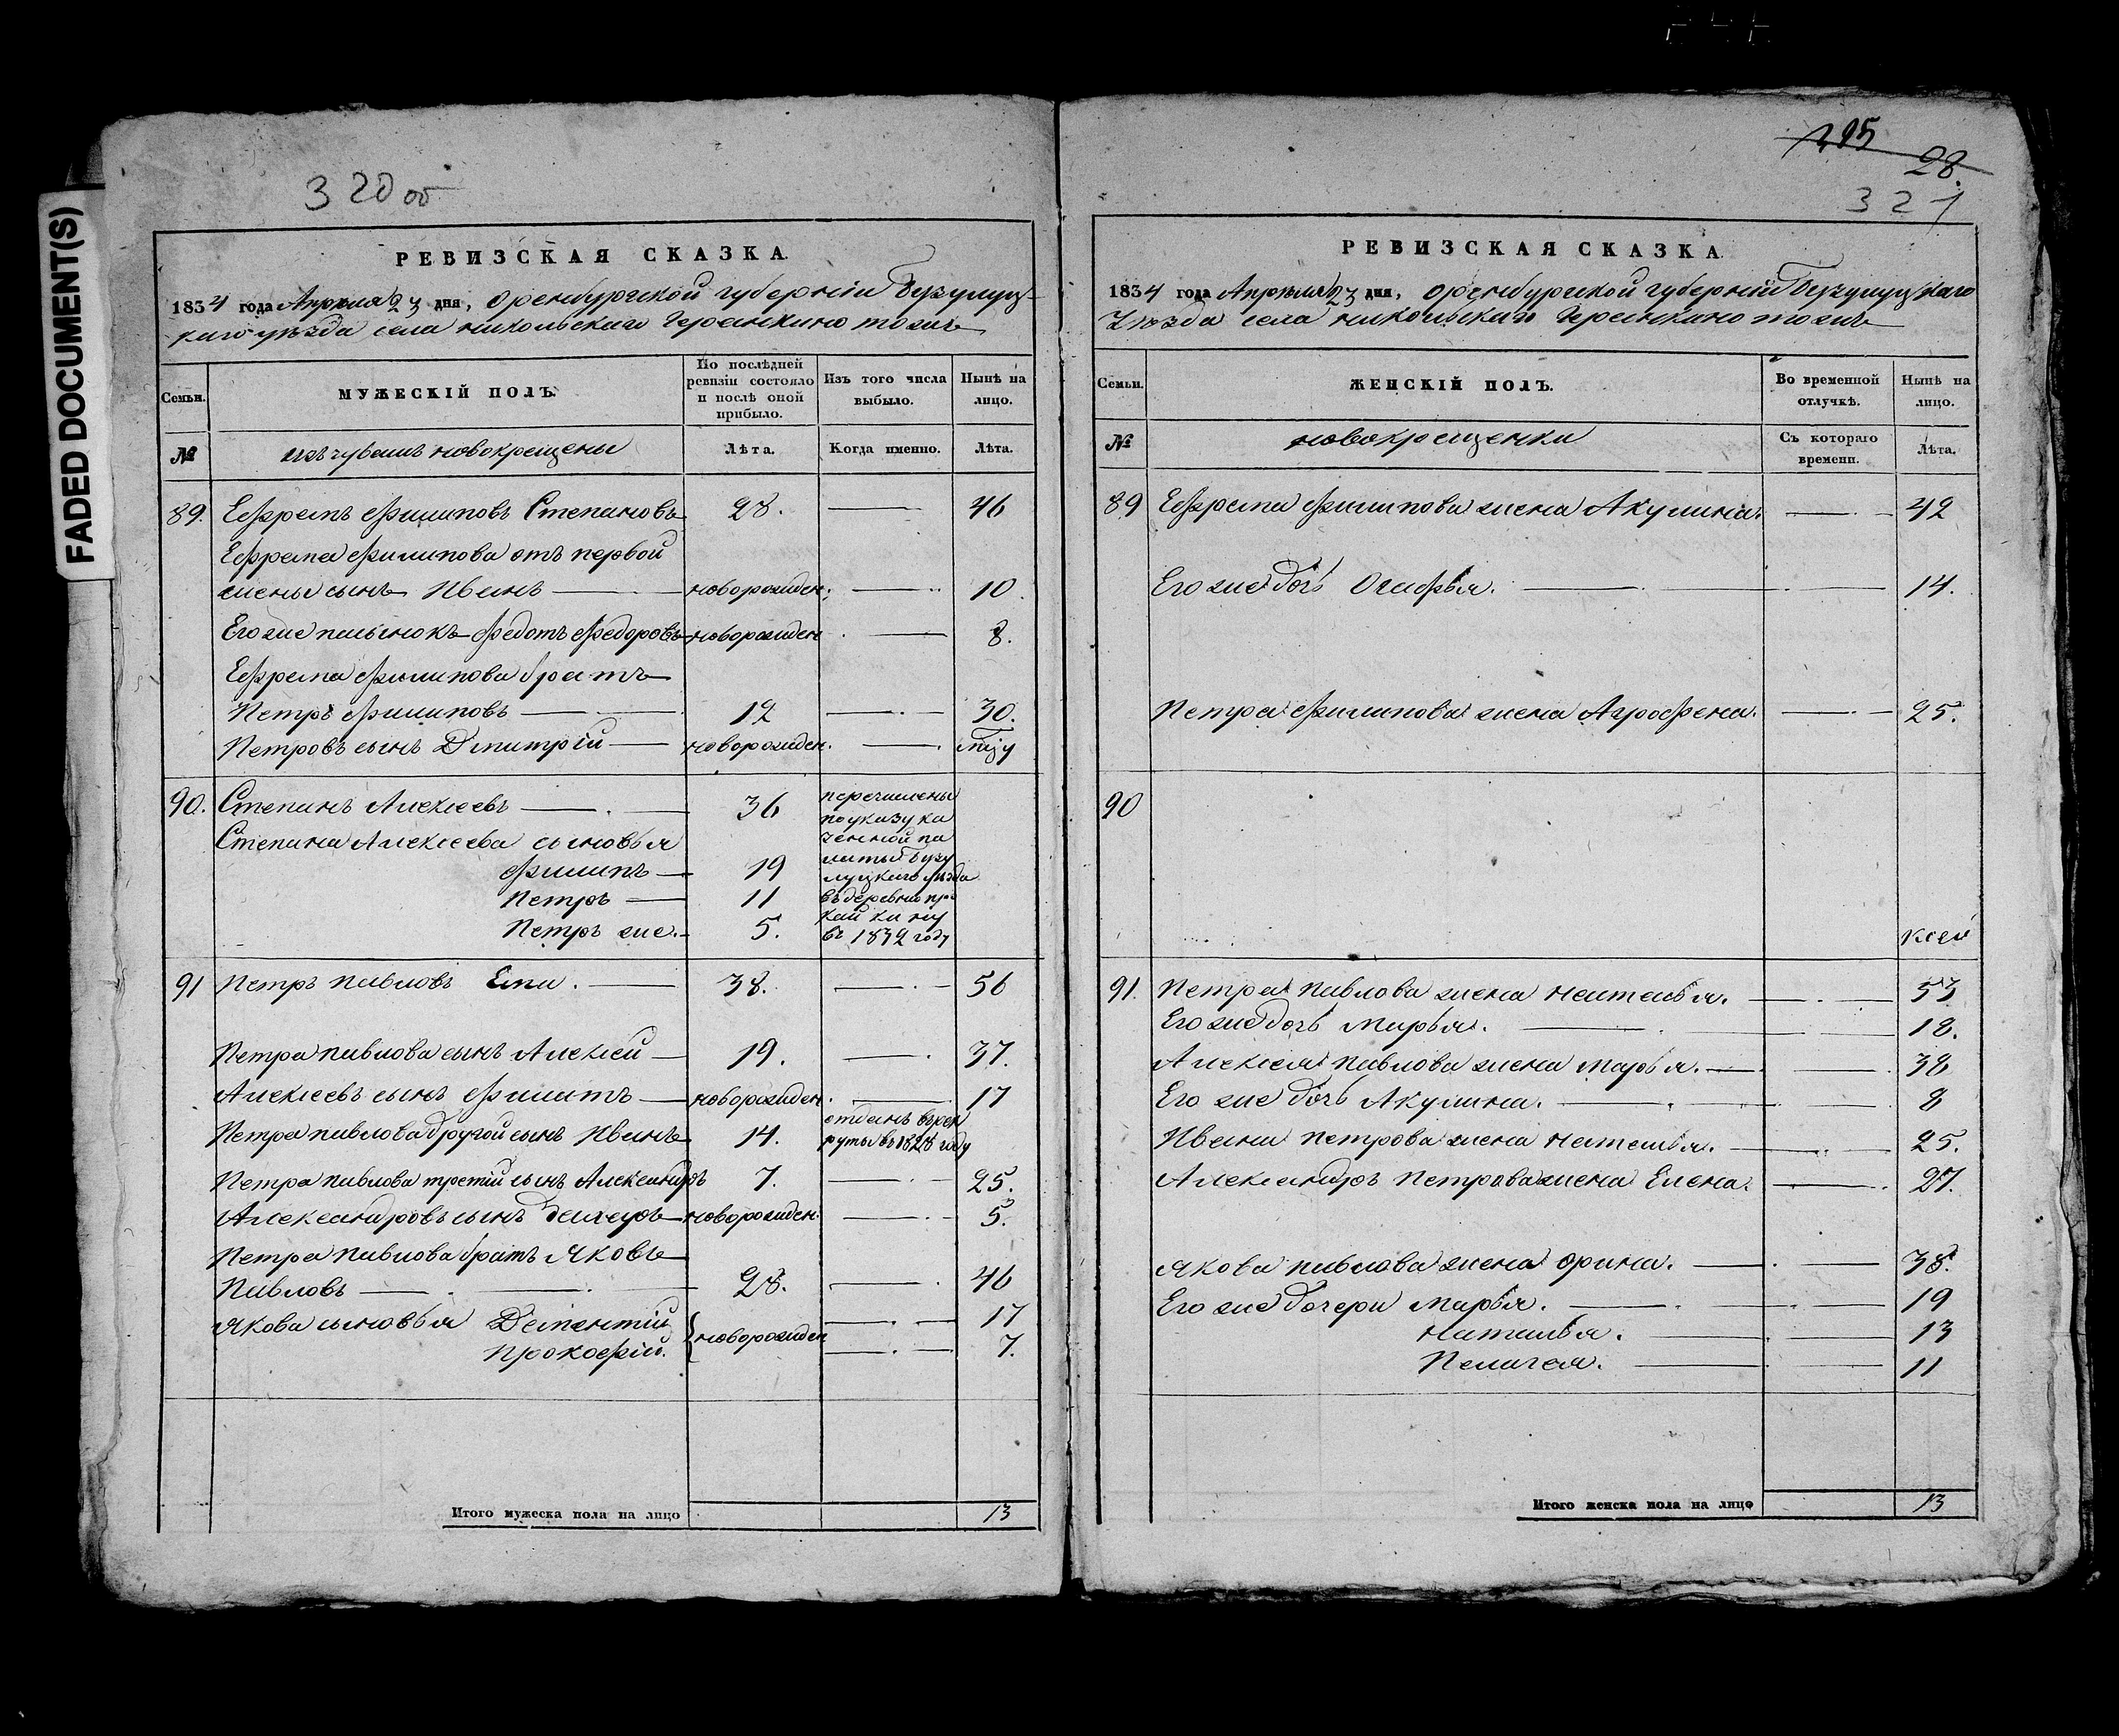 FADED DOCUMENT(S)
320 об
РЕВИЗСКАЯ СКАЗКА
1834 года Апреля 23 дня, Оренбургской губернiи Бузулуц-
каго уѣзда села Никольскаго Геранкино тожъ
Семьи.
МУЖЕСКIЙ ПОЛЪ.
По послѣдней ревизiи состояло и послѣ оной прибыло.
Изъ того числа выбыло.
Нынѣ на лицо.
№
изъ чувашъ новокрещены
Лѣта.
Когда именно.
Лѣта.
89. Ефремъ Филиповъ Степановъ 28. 46
Ефрема Филипова отъ первой
жены сынъ Иванъ новорожден. 10
Его же пасынокъ Федотъ Федоровъ новорожден 8.
Ефрема Филипова братъ
Петръ Филиповъ 12 30.
Петровъ сынъ Дмитрiй новорожден.
90. Степанъ Алексеевъ 36
Степана Алексеева сыновья
Филипъ 19
Петръ 11
Петръ же. 5.
перечислены
по указу ка
зенной па
латы Бузу
луцкаго уѣзда
въ деревню
въ 1832 году
91 Петръ Павловъ 38. 56
Петра Павлова сынъ Алексей 19. 37.
Алексеевъ сынъ Филипъ новорожден. 17
Петра Павлова другой сынъ Иванъ 14. отданъ въ рек
руты въ 1828 году
Петра Павлова третiй сынъ Александръ 7. 25.
Александровъ сынъ новорожден. 5.
Петра Павлова братъ Яковъ
Павловъ 28. 46
Якова сыновья Дементiй 17
новорожден
Прокофiй. 7.
Итого мужеска пола на лицо 13
28.
321
РЕВИЗСКАЯ СКАЗКА
1834 года Апреля 23 дня, Оренбургской губернiи Бузулуцкаго
Уѣзда села Никольскаго Геранкино тожъ
Семьи.
ЖЕНСКIЙ ПОЛЪ.
Во временной отлучкѣ.
Нынѣ на лицо.
№
новокрещенки
Съ котораго времени.
Лѣта.
89 Ефрема Филипова жена Акулина. 42
Его же дочь 14.
Петра Филипова жена Агрофена. 25.
90
91. Петра Павлова жена Наталья. 53
Его же дочь Марья. 18.
Алексея Павлова жена Марья. 38
Его же дочь Акулина. 8
Ивана Петрова жена Наталья. 25.
Александръ Петрова жена Елена. 27.
Якова Павлова жена Орина. 38.
Его же дочери Марья. 19
Наталья. 13
Пелагея. 11
Итого женска пола на лицо 13